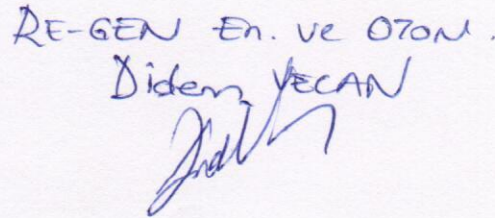 RE-GEN En. ve OTOM.
Didem YECAN